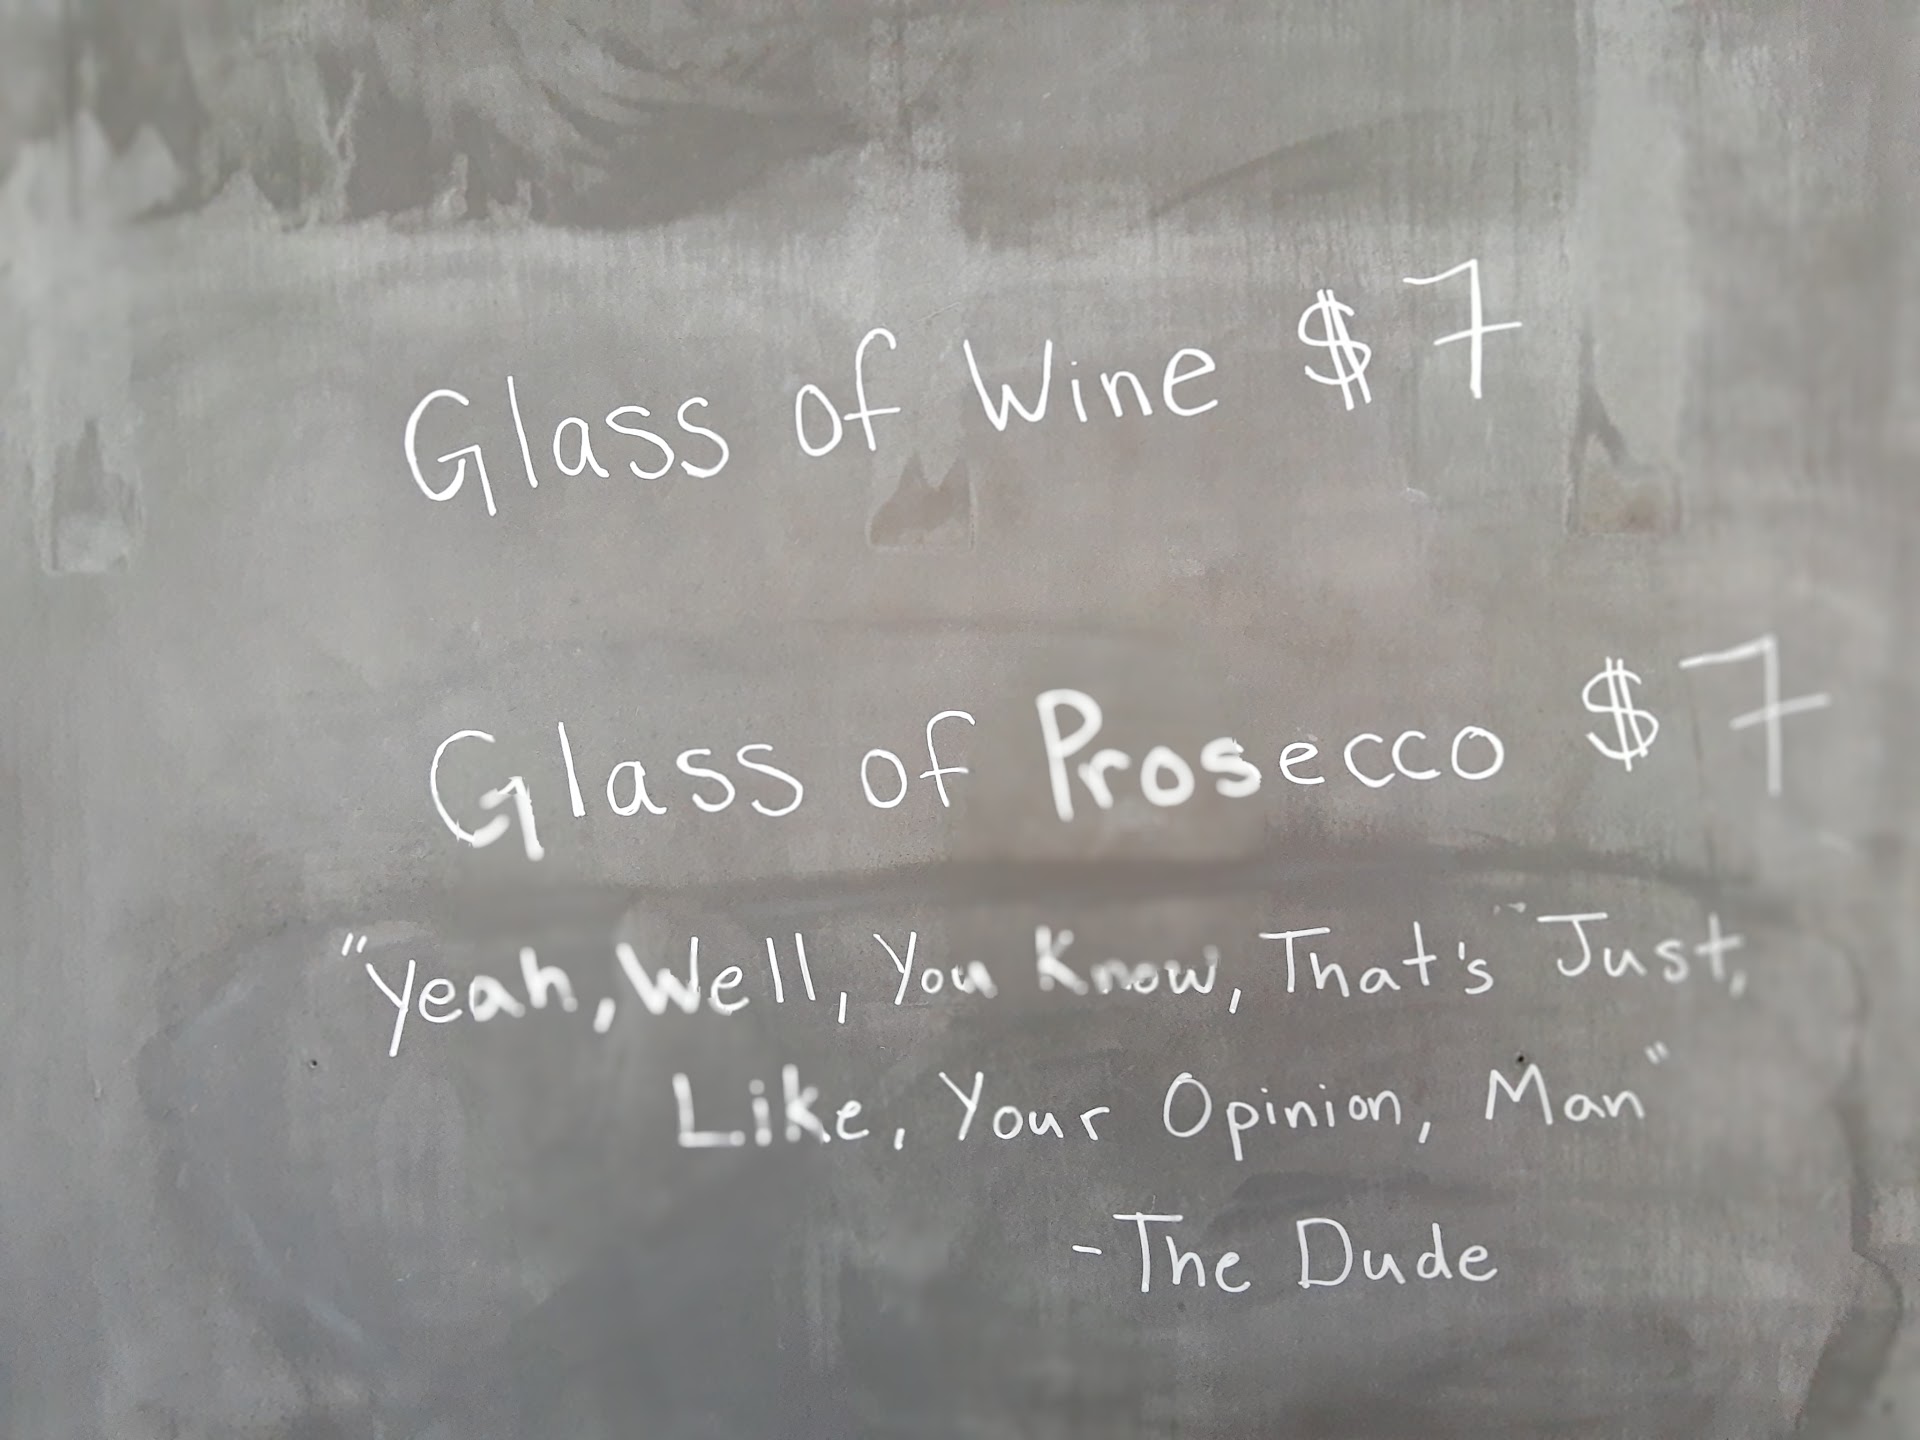 Glass of Wine $7
Glass of Prosecco $7
"Yeah, Well, You Know, That's Just,
Like, Your Opinion, Man"
-The Dude